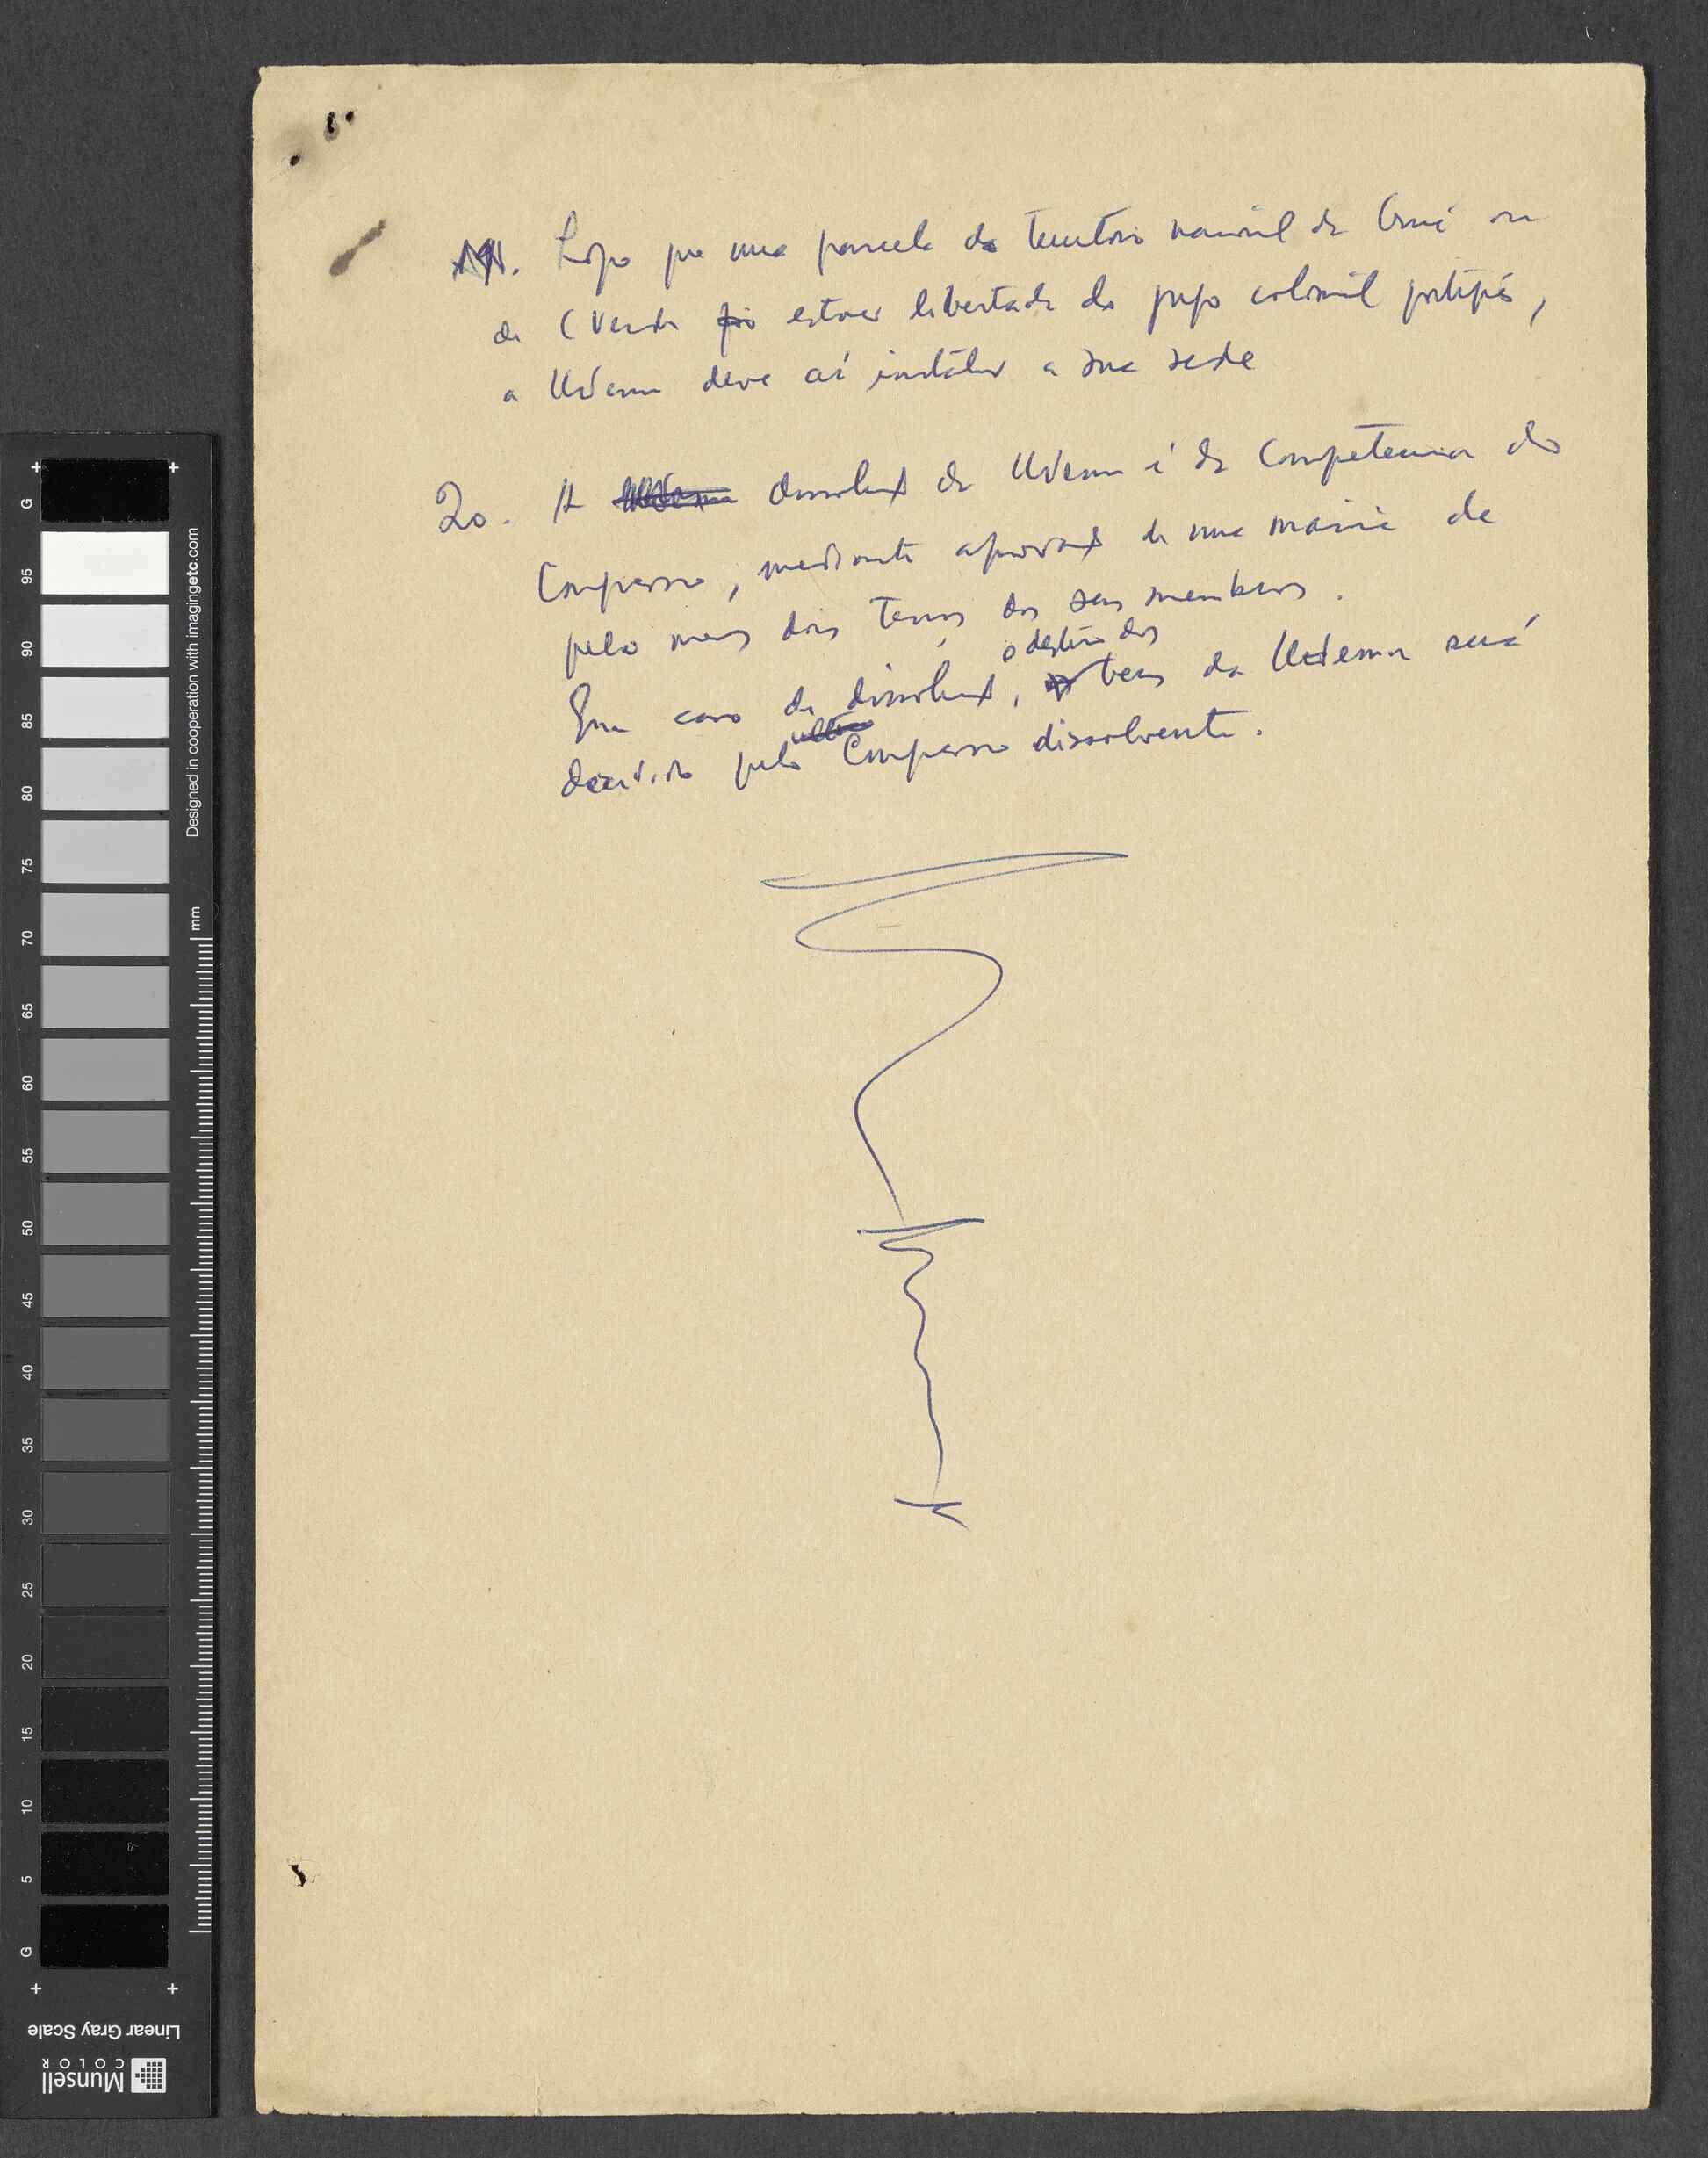 19. Logo que uma parcela do território nacional da Guiné ou
de C Verde estiver libertada do jugo colonial português,
a Udemu deve aí instalar a sua sede
20. A dissolução da Udemu é da competencia do
Congresso, mediante aprovação de uma maioria de
pelo menos dois terços dos seus membros.
Em caso de dissolução, o destino dos bens da Udemu será
decidido pelo Congresso dissolvente.
G
95
90
85
80
75
70
65
60
55
50
45
40
35
30
25
20
15
10
5
G
Designed in cooperation with imagingetc.com
mm
Linear Gray Scale
Munsell
COLOR